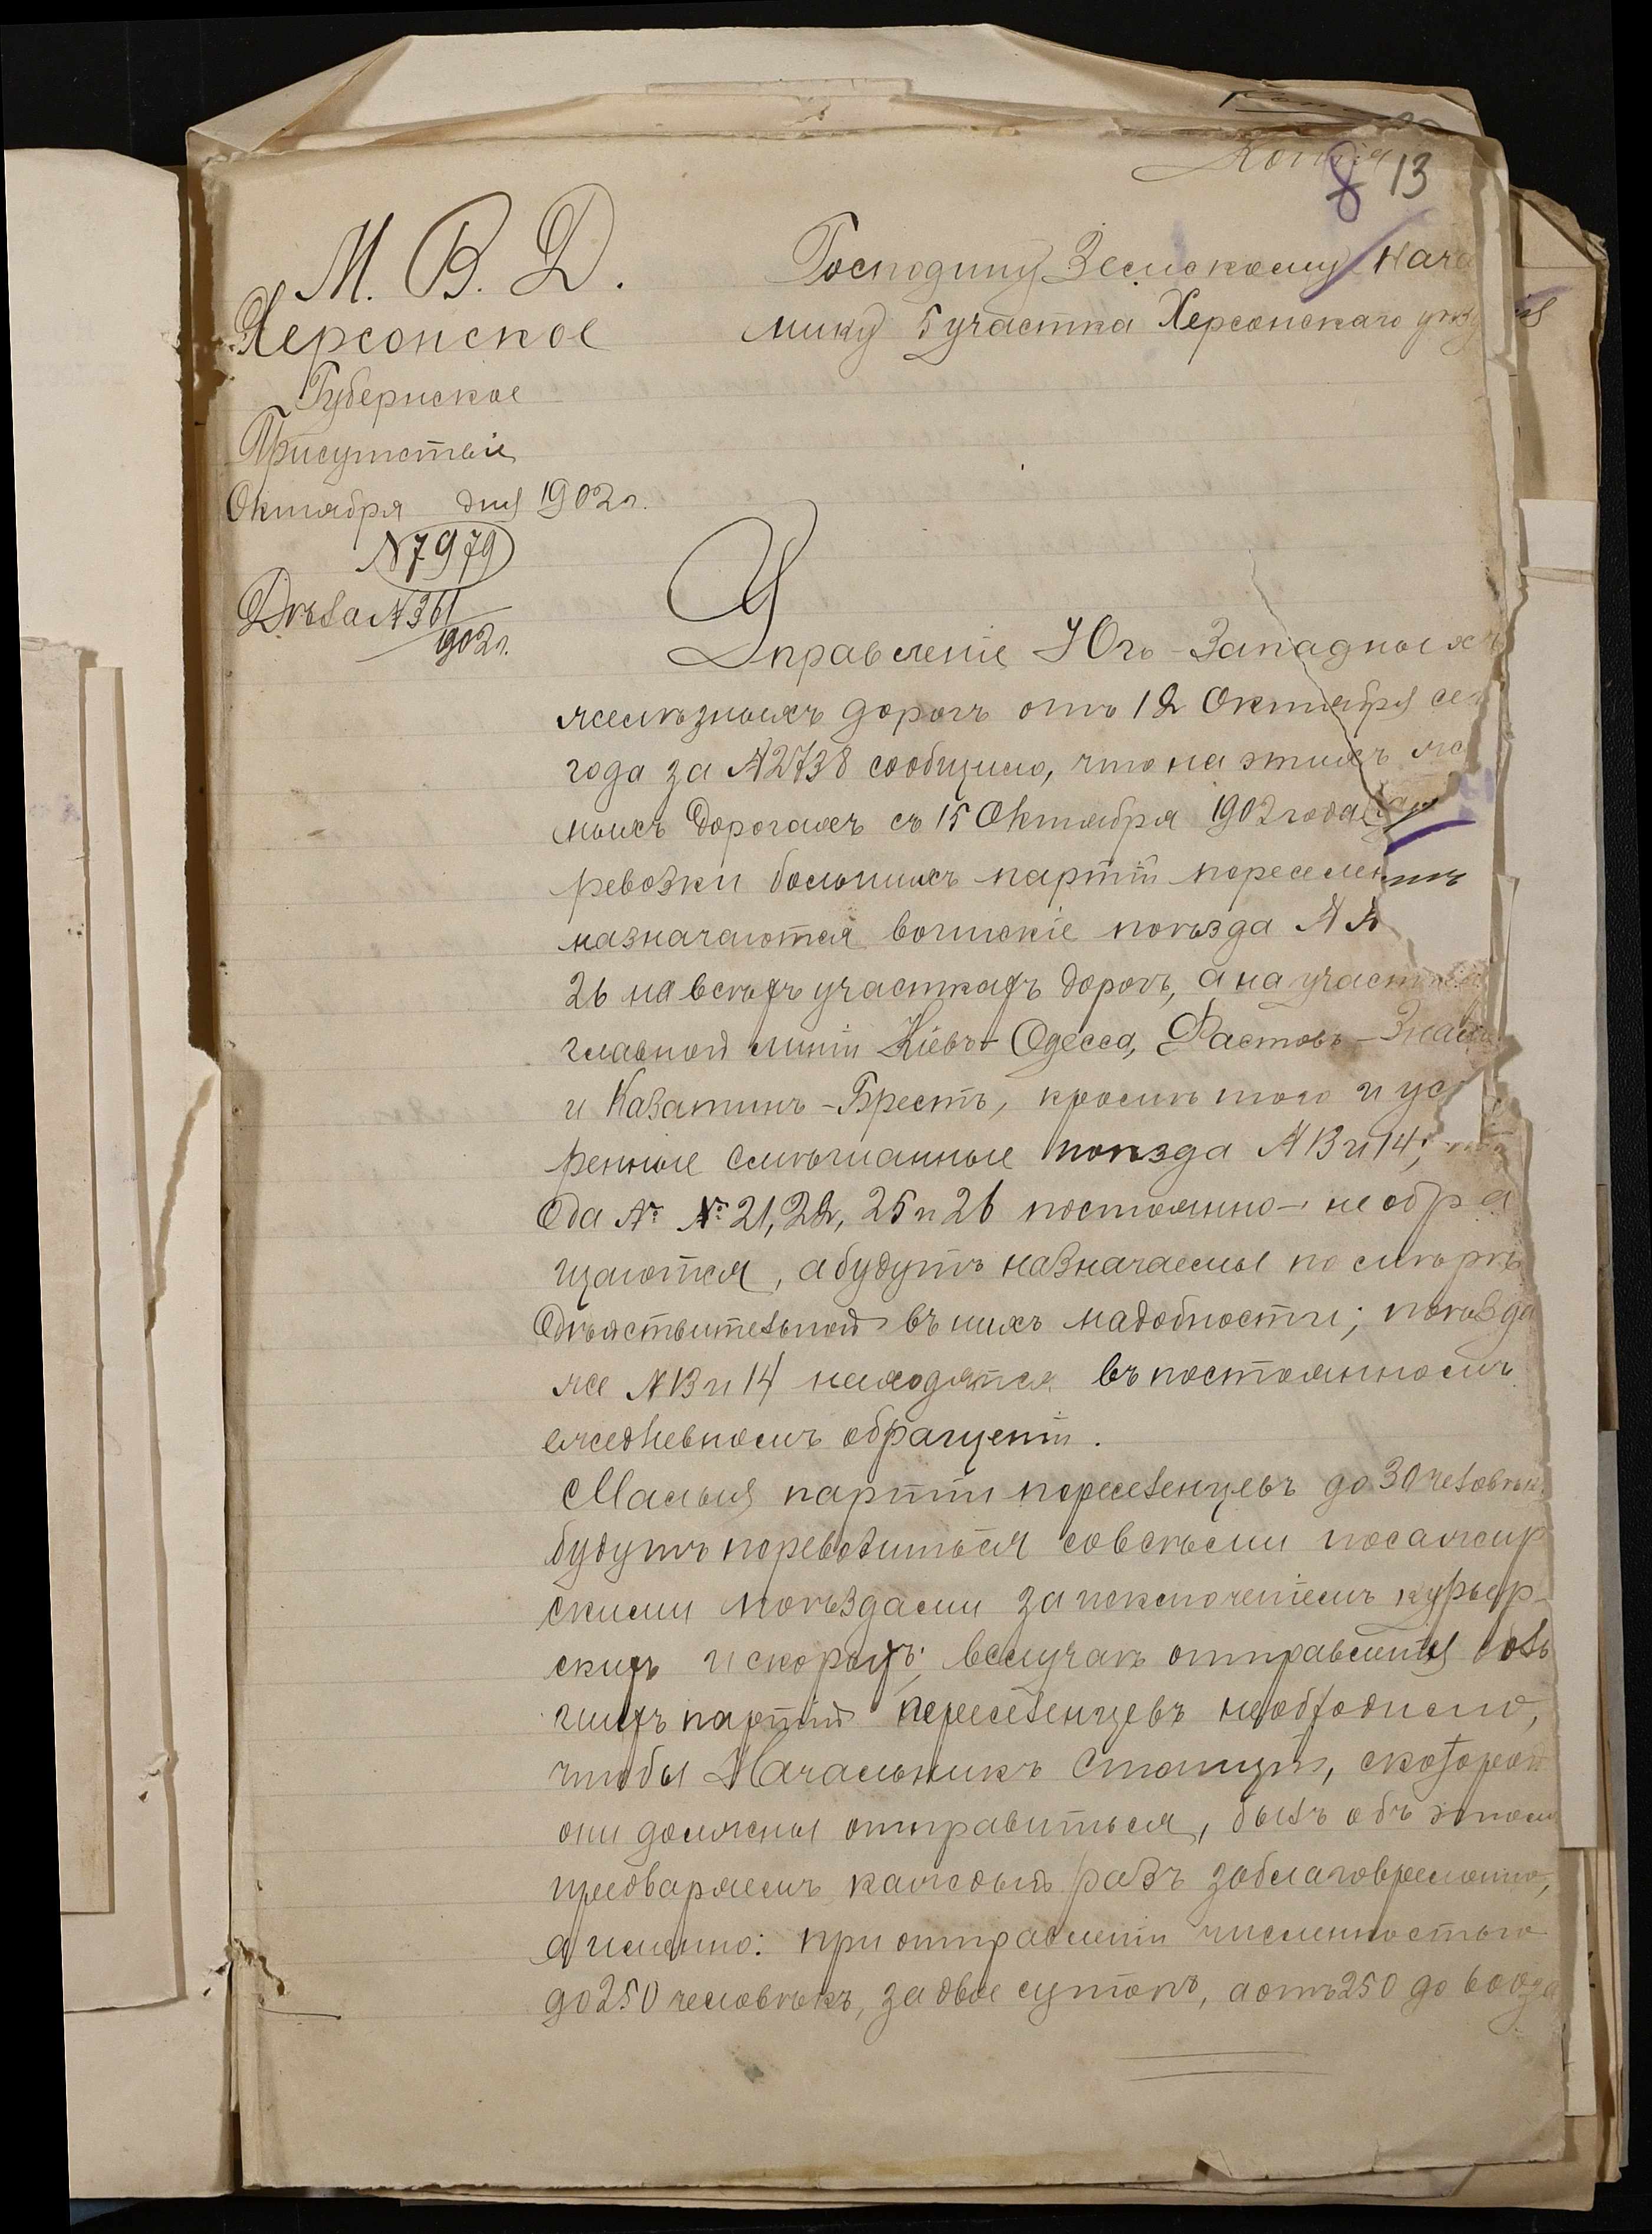 Копія
8 13
М. В. Д.
Херсонское
Губернское
Присутствіе
Октября дня 1902 г.
N 7979
Дѣла N 361
1902 г.
Господину Земскому Нача
нику 5 участка Херсонскаго уѣзд
Управленіе Юго-Западныхъ
желѣзныхъ дорогъ отъ 12 Октября сег
года за N 2738 сообщило, что на этихъ же
ныхъ дорогахъ съ 15 Октября 1902 года
ревозки большихъ партій переселен
назначаются воинскіе поѣзда N
26 на всѣхъ участкахъ дорогъ, а на участк
главной линіи Кіевъ-Одесса, Фастовъ-Знам
и Казатинъ-Брестъ, кромѣ того и уск
ренные смѣшанные поѣзда N 13 и 14;
зда № № 21, 22, 25 и 26 постоянно не обра
щаются, а будутъ назначаемы по мѣрѣ
дѣйствительной въ нихъ надобности; поѣзда
же N 13 и 14 находятся въ постоянномъ
ежедневномъ обращеніи.
Малыя партіи переселенцевъ до 30 человѣкъ
будутъ перевозиться со всѣми пасажир
скими поѣздами за исключеніемъ курьер-
скихъ и скорыхъ; вслучаѣ отправленія боль
шихъ партій переселенцевъ необходимо,
чтобы Начальникъ Станціи, съ которой
они должны отправиться, былъ объ этомъ
предваряемъ каждый разъ заблаговременно,
а именно: при отправленіи численностью
до 250 человѣкъ, за двое сутокъ, а отъ 250 до 600 за